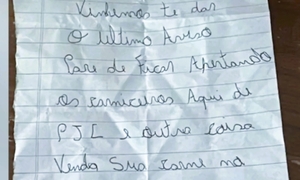 Viemos te dar
O Ultimo Aviso
Pare de Ficar Apertando
os carniceiros Aqui de
PJL e outra coisa
Venda Sua carne na